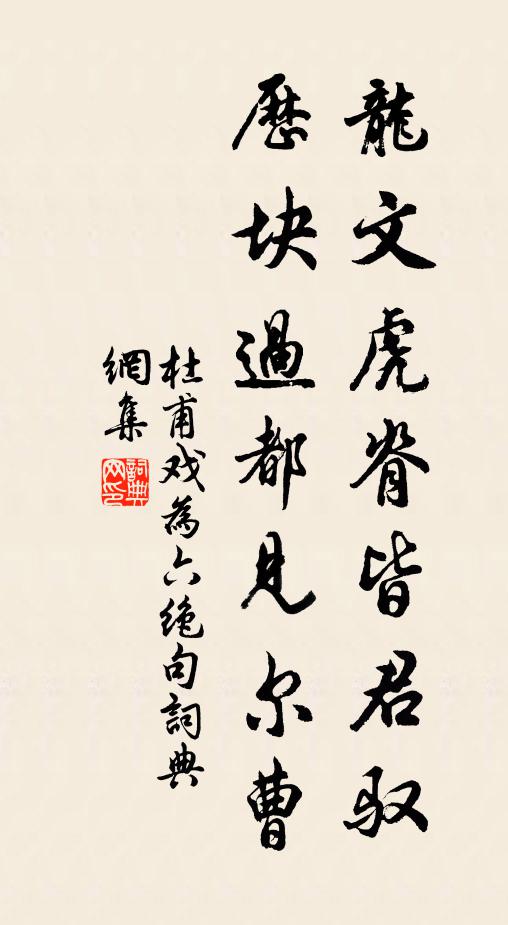 龍文虎脊皆君驭
歷块過都見尔曹
杜甫戏為六绝句詞典
網集
詞典網印